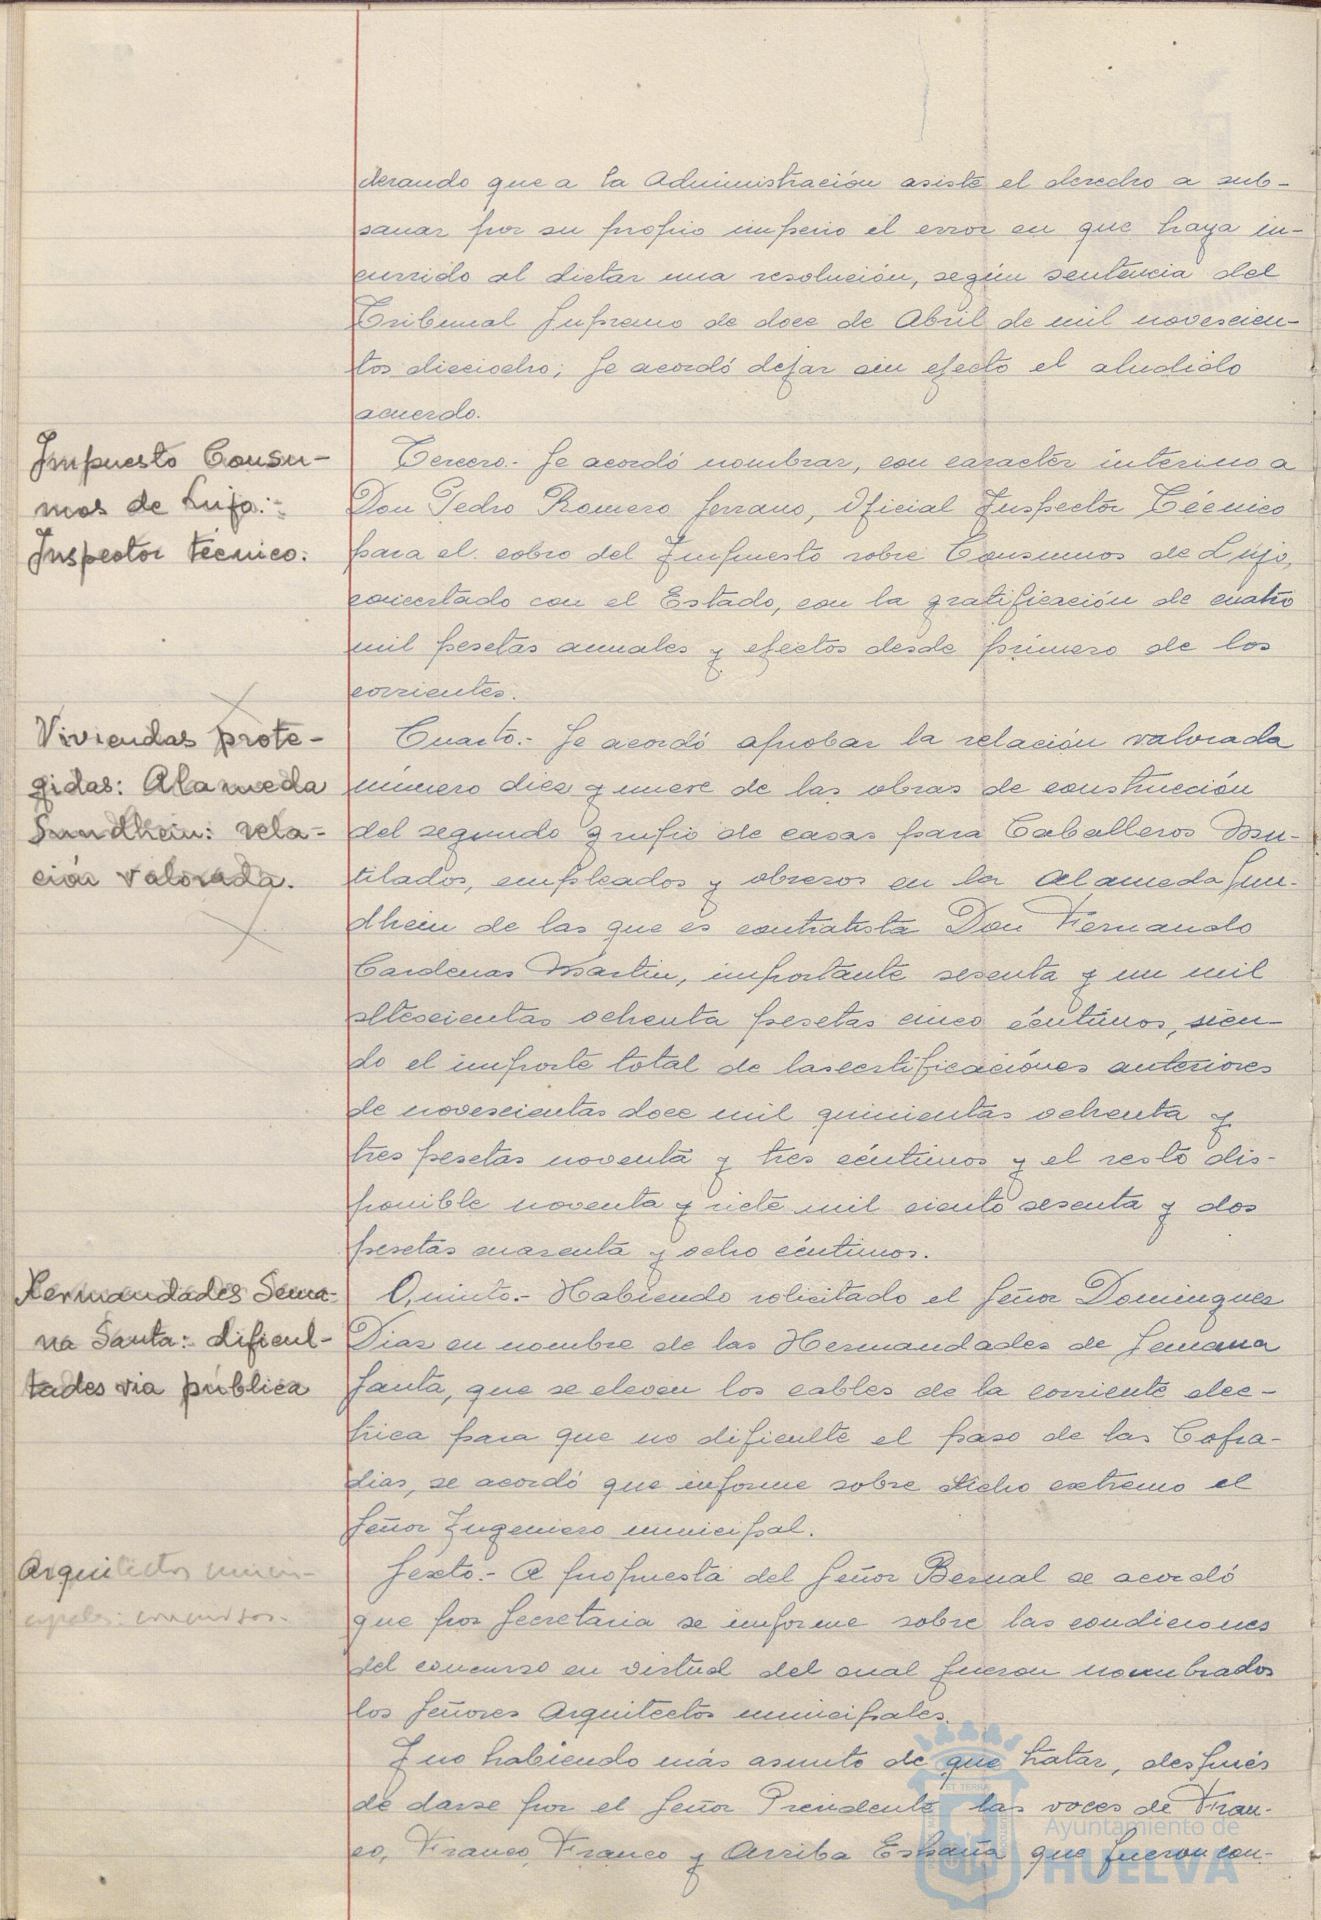 derando que a la Administración asiste el derecho a sub-
sanar por su propio imperio el error en que haya in-
currido al dictar una resolución, según sentencia del
Tribunal Supremo de doce de Abril de mil novescien-
tos dieciocho; Se acordó dejar sin efecto el aludido
acuerdo.
Impuesto Consu-
mos de Lujo:-
Inspector técnico:
Tercero.- Se acordó nombrar, con caracter interino a
Don Pedro Romero Serrano, Oficial Inspector Técnico
para el cobro del Impuesto sobre Consumos de Lujo,
concertado con el Estado, con la gratificación de cuatro
mil pesetas anuales y efectos desde primero de los
corrientes.
Viviendas prote-
gidas: Alameda
Sundhein: rela-
ción valorada.
Cuarto.- Se acordó aprobar la relación valorada
número diez y nueve de las obras de construcción
del segundo grupo de casas para Caballeros Mu-
tilados, empleados y obreros en la Alameda Sun-
dhein de las que es contratista Don Fernando
Cardenas Martin, importante sesenta y un mil
setescientas ochenta pesetas cinco céntimos, sien-
do el importe total de las certificaciónes anteriores
de novescientas doce mil quinientas ochenta y
tres pesetas noventa y tres céntimos y el resto dis-
ponible noventa y siete mil ciento sesenta y dos
pesetas cuarenta y ocho céntimos.
Hermandades Sema-
na Santa:- dificul-
tades via pública
Quinto.- Habiendo solicitado el Señor Dominguez
Diaz en nombre de las Hermandades de Semana
Santa, que se eleven los cables de la corriente elec-
trica para que no dificulte el paso de las Cofra-
dias, se acordó que informe sobre dicho extremo el
Señor Ingeniero municipal.
Arquitectos munici-
cipales: concursos.
Sexto.- A propuesta del Señor Bernal se acordó
que por Secretaria se informe sobre las condiciones
del concurso en virtud del cual fueron nombrados
los Señores Arquitectos municipales.
Y no habiendo más asunto de que tratar, después
de darse por el Señor Presidente las voces de Fran-
co, Franco, Franco y Arriba España que fueron con-
Ayuntamiento de
HUELVA